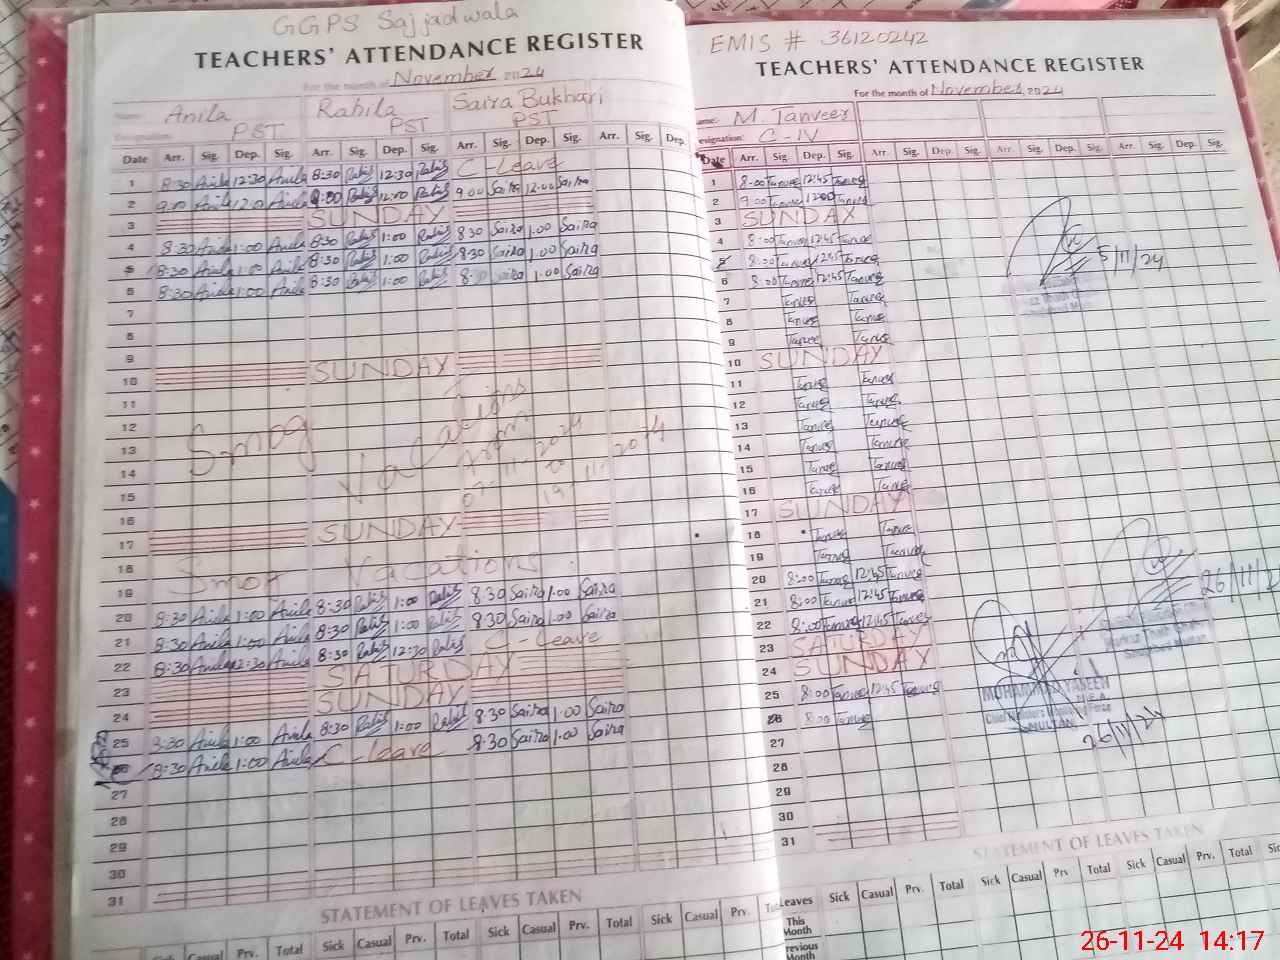 GGPS Sajjadwala
TEACHERS' ATTENDANCE REGISTER
For the month of November 2024
Name: Anila Rahila Saira Bukhari
Designation: PST PST PST
Date Arr. Sig. Dep. Sig. Arr. Sig. Dep. Sig. Arr. Sig. Dep. Sig. Arr. Sig. Dep.
1 8:30 Anila 12:30 Anila 8:30 Rahila 12:30 Rahila C-Leave
2 9:00 Anila 12:00 Anila 9:00 Rahila 12:00 Rahila 9:00 Saira 12:00 Saira
3 SUNDAY
4 8:30 Anila 1:00 Anila 8:30 Rahila 1:00 Rahila 8:30 Saira 1:00 Saira
5 8:30 Anila 1:00 Anila 8:30 Rahila 1:00 Rahila 8:30 Saira 1:00 Saira
6 8:30 Anila 1:00 Anila 8:30 Rahila 1:00 Rahila 8:30 Saira 1:00 Saira
7
8
9
10 SUNDAY
11
12
13 Smog Vacations from
14 07-11-2024 to 19-11-2024
15
16
17 SUNDAY
18
19 Smog Vacations
20 8:30 Anila 1:00 Anila 8:30 Rahila 1:00 Rahila 8:30 Saira 1:00 Saira
21 8:30 Anila 1:00 Anila 8:30 Rahila 1:00 Rahila 8:30 Saira 1:00 Saira
22 8:30 Anila 12:30 Anila 8:30 Rahila 12:30 Rahila C-Leave
23 SATURDAY
24 SUNDAY
25 8:30 Anila 1:00 Anila 8:30 Rahila 1:00 Rahila 8:30 Saira 1:00 Saira
26 8:30 Anila 1:00 Anila C-leave 8:30 Saira 1:00 Saira
27
28
29
30
31
STATEMENT OF LEAVES TAKEN
Sick Casual Prv. Total Sick Casual Prv. Total Sick Casual Prv. Total Sick Casual Prv.
EMIS # 36120242
TEACHERS' ATTENDANCE REGISTER
For the month of November, 2024
Name: M. Tanveer
Designation: C-IV
Date Arr. Sig. Dep. Sig. Arr. Sig. Dep. Sig. Arr. Sig. Dep. Sig. Arr. Sig. Dep. Sig.
1 8:00 Tanveer 12:45 Tanveer
2 9:00 Tanveer 12:00 Tanveer
3 SUNDAY
4 8:00 Tanveer 12:45 Tanveer
5 8:00 Tanveer 12:45 Tanveer 5/11/24
6 8:00 Tanveer 12:45 Tanveer
7 Tanveer Tanveer
8 Tanveer Tanveer
9 Tanveer Tanveer
10 SUNDAY
11 Tanveer Tanveer
12 Tanveer Tanveer
13 Tanveer Tanveer
14 Tanveer Tanveer
15 Tanveer Tanveer
16 Tanveer Tanveer
17 SUNDAY
18 Tanveer Tanveer
19 Tanveer Tanveer
20 8:00 Tanveer 12:45 Tanveer
21 8:00 Tanveer 12:45 Tanveer 26/11/24
22 8:00 Tanveer 12:45 Tanveer
23 SATURDAY
24 SUNDAY
25 8:00 Tanveer 12:45 Tanveer
MUHAMMAD YASEEN
M.E.A
26 8:00 Tanveer
MULTAN
26/11/24
27
28
29
30
31
STATEMENT OF LEAVES TAKEN
Leaves Sick Casual Prv. Total Sick Casual Prv Total Sick Casual Prv. Total
This Month
Previous Month
26-11-24 14:17